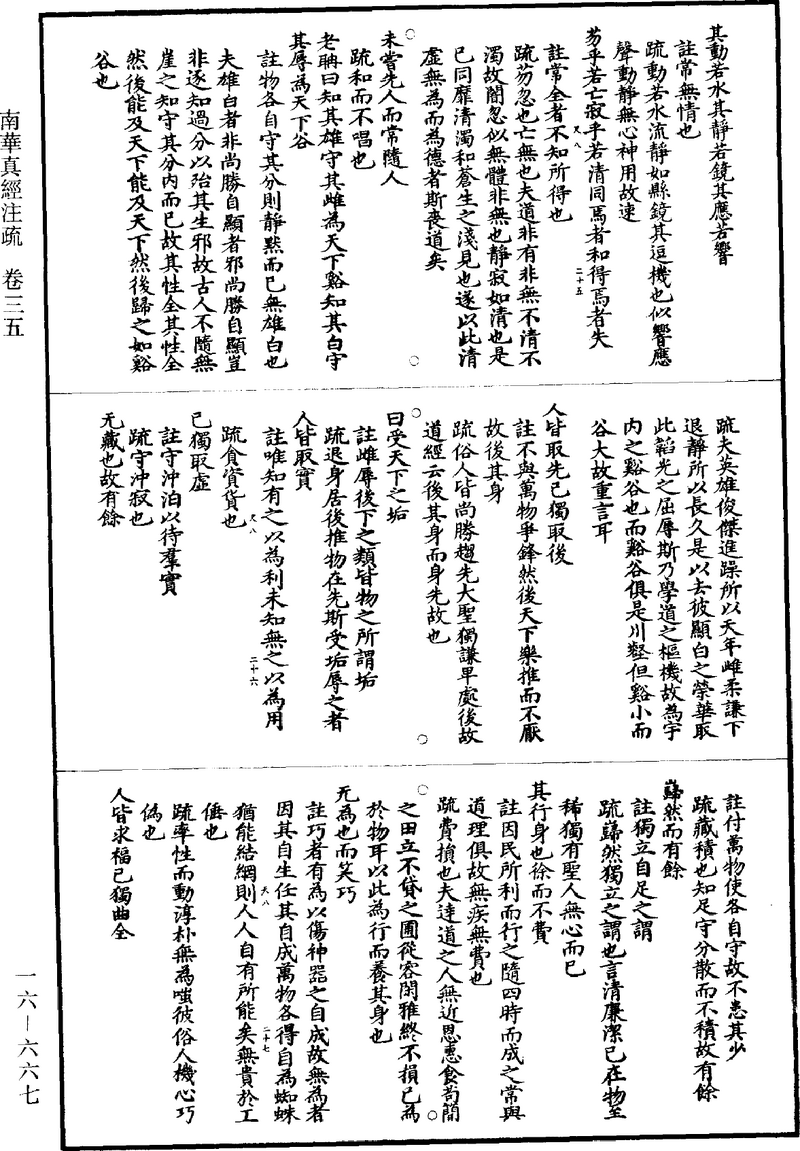 其動若水其靜若鏡其應若響
註常無情也
疏動若水流靜如縣鏡其逗機也似響應
聲動靜無心神用故速
芴乎若亡寂乎若清同焉者和得焉者失
尺八
二十五
註常全者不知所得也
疏芴忽也亡無也夫道非有非無不清不
濁故闇忽似無體非無也靜寂如清也是
已同靡清濁和蒼生之淺見也遂以此清
虛無為而為德者斯喪道矣
未嘗先人而常隨人
疏和而不唱也
老聃曰知其雄守其雌為天下谿知其白守
其辱為天下谷
註物各自守其分則靜默而已無雄白也
夫雄白者非尚勝自顯者邪尚勝自顯豈
非逐知過分以殆其生邪故古人不隨無
崖之知守其分內而已故其性全其性全
然後能及天下能及天下然後歸之如谿
谷也
疏夫英雄俊傑進躁所以夭年雌柔謙下
退靜所以長久是以去彼顯白之榮華取
此韜光之屈辱斯乃學道之樞機故為宇
內之谿谷也而谿谷俱是川壑但谿小而
谷大故重言耳
人皆取先己獨取後
註不與萬物爭鋒然後天下樂推而不厭
故後其身
疏俗人皆尚勝趨先大聖獨謙卑處後故
道經云後其身而身先故也
曰受天下之垢
註雌辱後下之類皆物之所謂垢
疏退身居後推物在先斯受垢辱之者
人皆取實
註唯知有之以為利未知無之以為用
尺八
二十六
疏貪資貨也
己獨取虛
註守沖泊以待羣實
疏守沖寂也
无藏也故有餘
註付萬物使各自守故不患其少
疏藏積也知足守分散而不積故有餘
巋然而有餘
註獨立自足之謂
疏巋然獨立之謂也言清廉潔己在物至
稀獨有聖人無心而已
其行身也徐而不費
註因民所利而行之隨四時而成之常與
道理俱故無疾無費也
疏費損也夫達道之人無近恩惠食苟簡
之田立不貸之圃從容閑雅終不損己為
於物耳以此為行而養其身也
无為也而笑巧
註巧者有為以傷神器之自成故無為者
因其自生任其自成萬物各得自為蜘蛛
尺八
二十七
猶能結網則人人自有所能矣無貴於工
倕也
疏率性而動淳朴無為嗤彼俗人機心巧
偽也
人皆求福己獨曲全
南華真經注疏　卷三五
一六—六六七